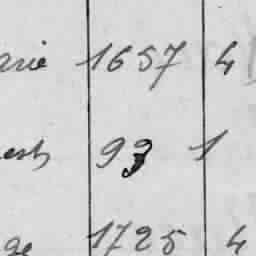 arie 1657 4
est 93 1
ge 1725 4